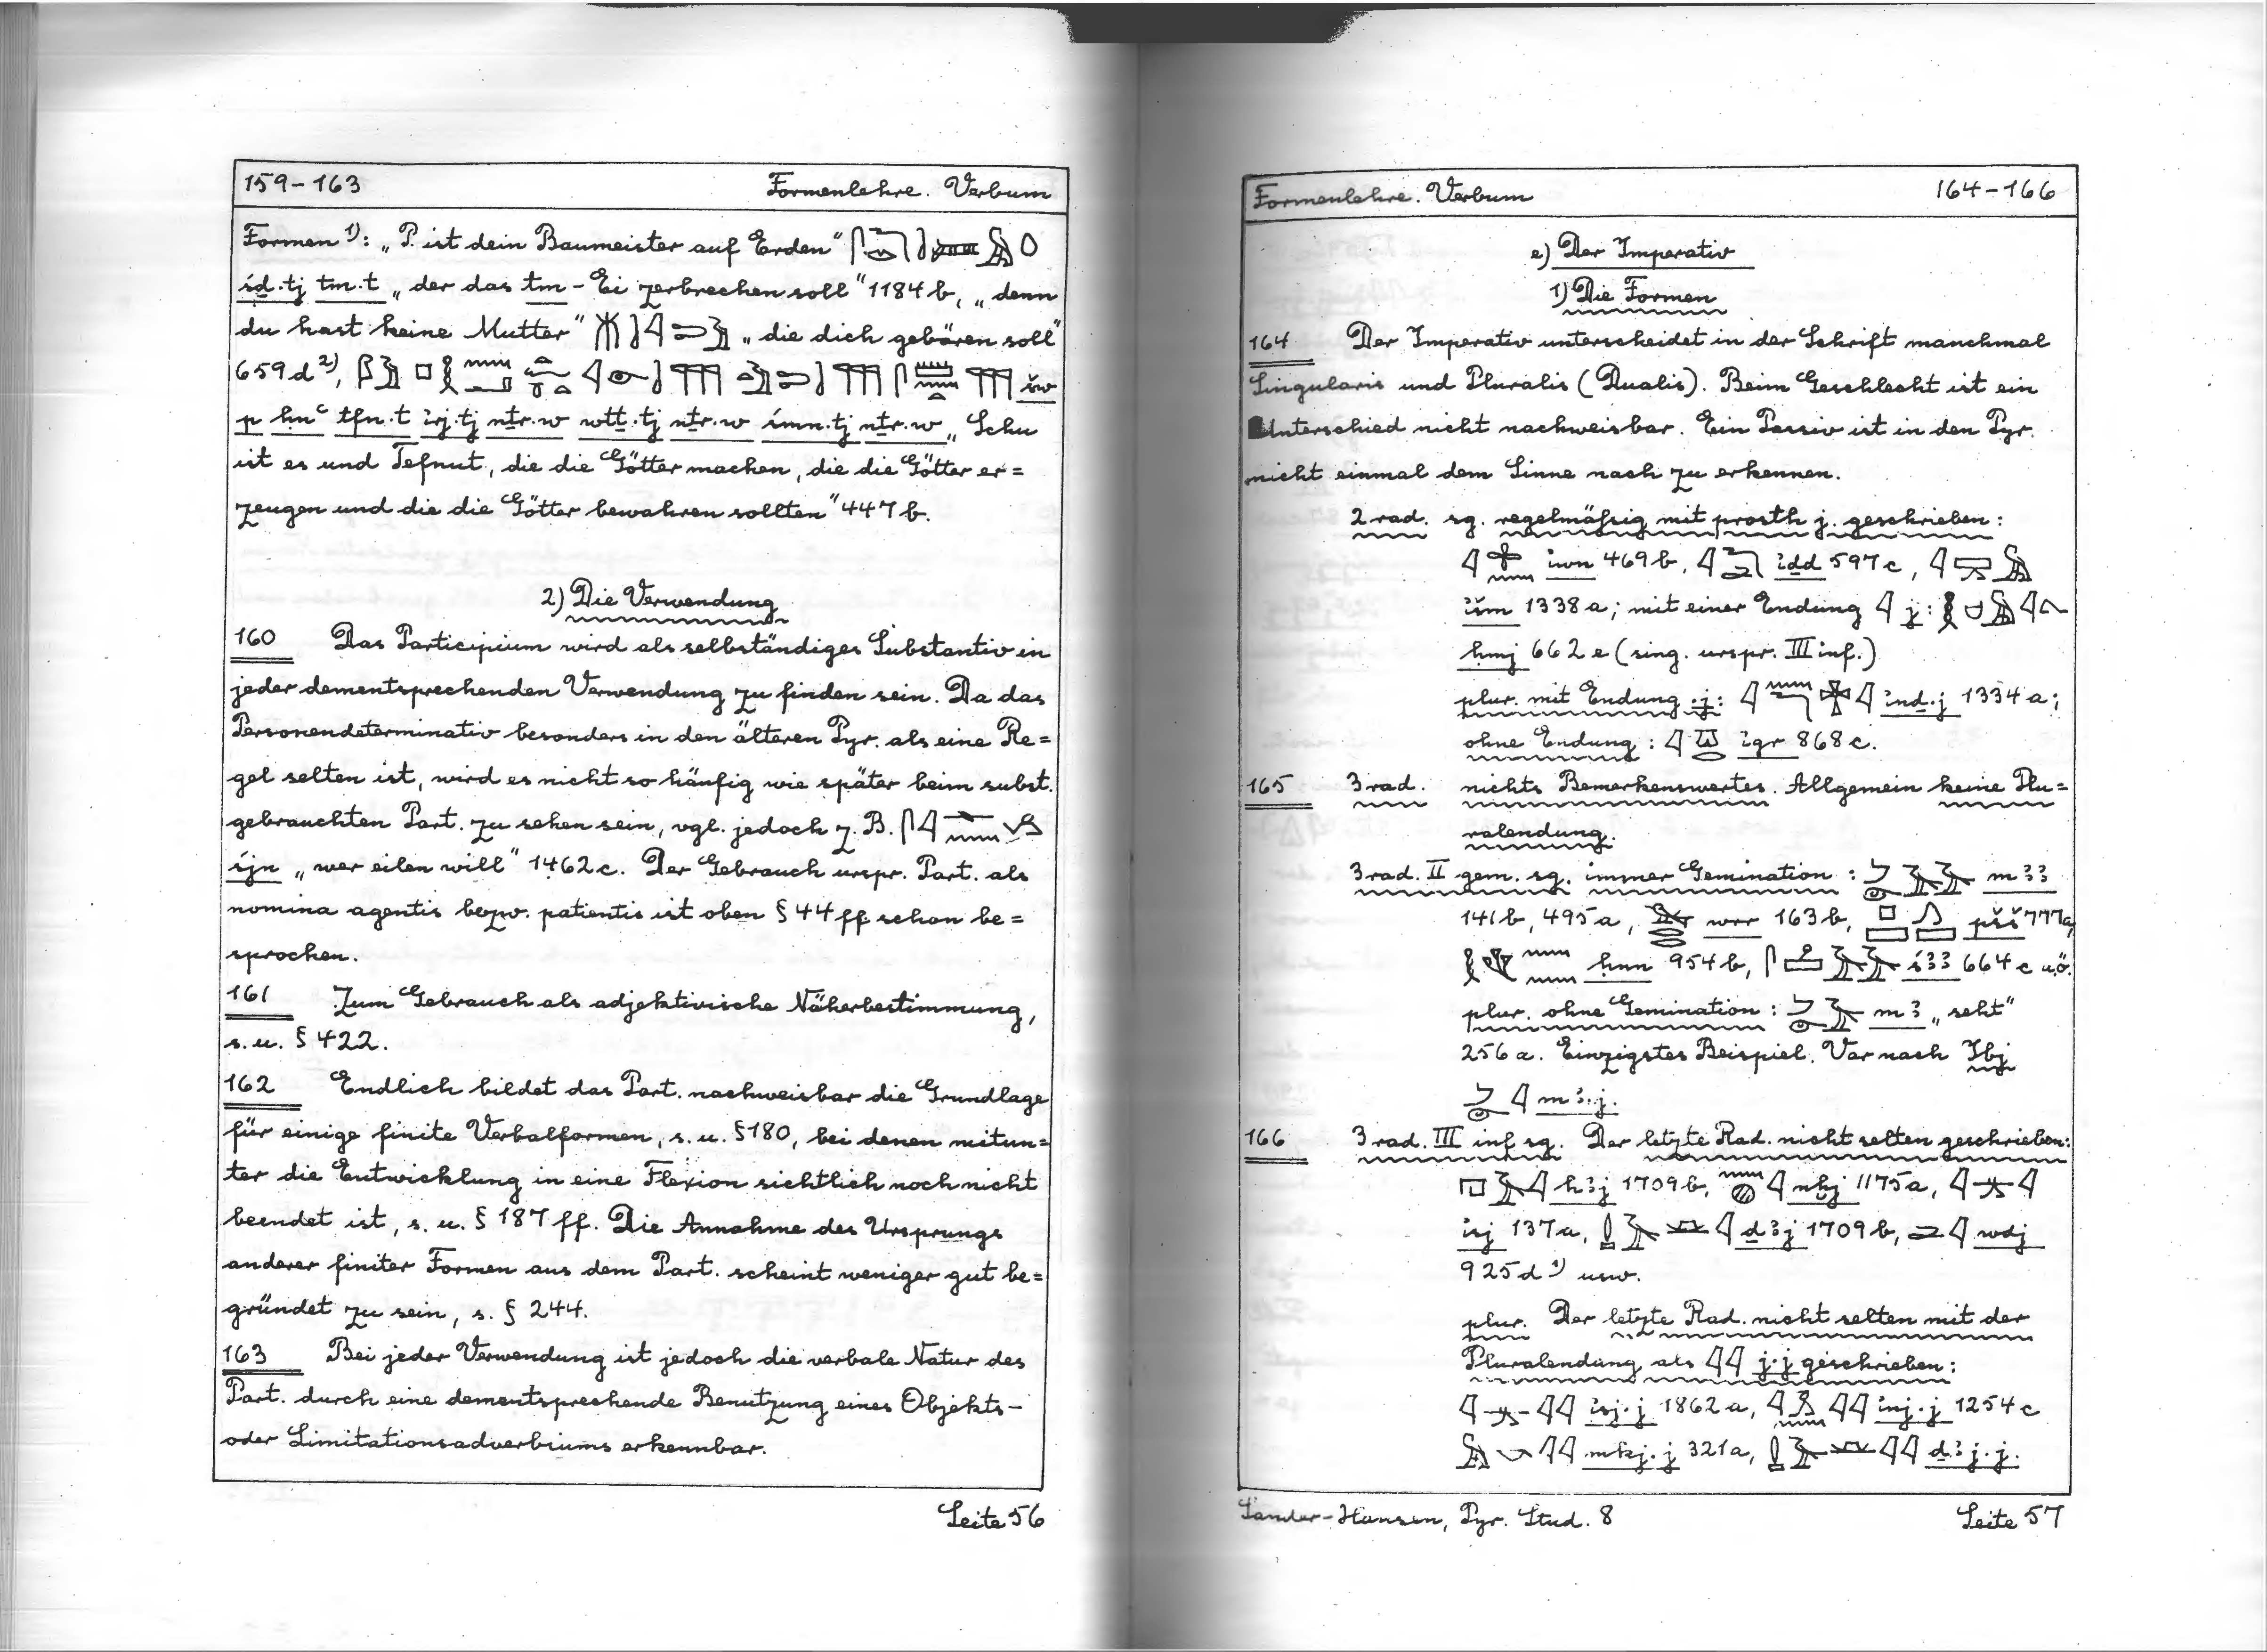 159-163 Formenlehre. Verbum
Formen ¹⁾: „P. ist dein Baumeister auf Erden"
śḏ.tj tm.t „der das tm-Ei zerbrechen soll" 1184 b, „denn
du hast keine Mutter" „die dich gebären soll"
659 d ²⁾, šw
p ḥnʿ tfn.t irj.tj nṯr.w wtṯ.tj nṯr.w śmn.tj nṯr.w „Schu
ist es und Tefnut, die die Götter machen, die die Götter er=
zeugen und die die Götter bewahren sollten" 447 b.
2) Die Verwendung
160 Das Participium wird als selbständiges Substantiv in
jeder dementsprechenden Verwendung zu finden sein. Da das
Personendeterminativ besonders in den älteren Pyr. als eine Re=
gel selten ist, wird es nicht so häufig wie später beim subst.
gebrauchten Part. zu sehen sein, vgl. jedoch z. B.
śjn „wer eilen will" 1462 c. Der Gebrauch urspr. Part. als
nomina agentis bezw. patientis ist oben § 44 ff schon be=
sprochen.
161 Zum Gebrauch als adjektivische Näherbestimmung,
s. u. § 422.
162 Endlich bildet das Part. nachweisbar die Grundlage
für einige finite Verbalformen, s. u. § 180, bei denen mitun=
ter die Entwicklung in eine Flexion sichtlich noch nicht
beendet ist, s. u. § 187 ff. Die Annahme des Ursprungs
anderer finiter Formen aus dem Part. scheint weniger gut be=
gründet zu sein, s. § 244.
163 Bei jeder Verwendung ist jedoch die verbale Natur des
Part. durch eine dementsprechende Benutzung eines Objekts-
oder Limitationsadverbiums erkennbar.
Seite 56
Formenlehre. Verbum 164-166
e) Der Imperativ
1) Die Formen
164 Der Imperativ unterscheidet in der Schrift manchmal
Singularis und Pluralis (Dualis). Beim Geschlecht ist ein
Unterschied nicht nachweisbar. Ein Passiv ist in den Pyr.
nicht einmal dem Sinne nach zu erkennen.
2 rad. sg. regelmäßig mit prosth j. geschrieben:
iwn 469 b, iḏd 597 c,
išm 1338 a; mit einer Endung j:
ḥmj 662 e (sing. urspr. III inf.)
plur. mit Endung .j: inḏ.j 1334 a;
ohne Endung: igr 868 c.
165 3 rad. nichts Bemerkenswertes. Allgemein keine Plu=
ralendung.
3 rad. II gem. sg. immer Gemination: mꜣꜣ
141 b, 495 a, wrr 163 b, pšš 777 a,
ḥnn 954 b, śꜣꜣ 664 c u.ö.
plur. ohne Gemination: mꜣ „seht"
256 a. Einzigstes Beispiel. Var nach Ibj
mꜣ.j.
166 3 rad. III inf sg. Der letzte Rad. nicht selten geschrieben:
hꜣj 1709 b, nḫj 1175 a,
isj 137 a, ḏꜣj 1709 b, wdj
925 d ¹⁾ usw.
plur. Der letzte Rad. nicht selten mit der
Pluralendung als j.j geschrieben:
isj.j 1862 a, inj.j 1254 c
mkj.j 321 a, ḏꜣj.j.
Sander-Hansen, Pyr. Stud. 8 Seite 57